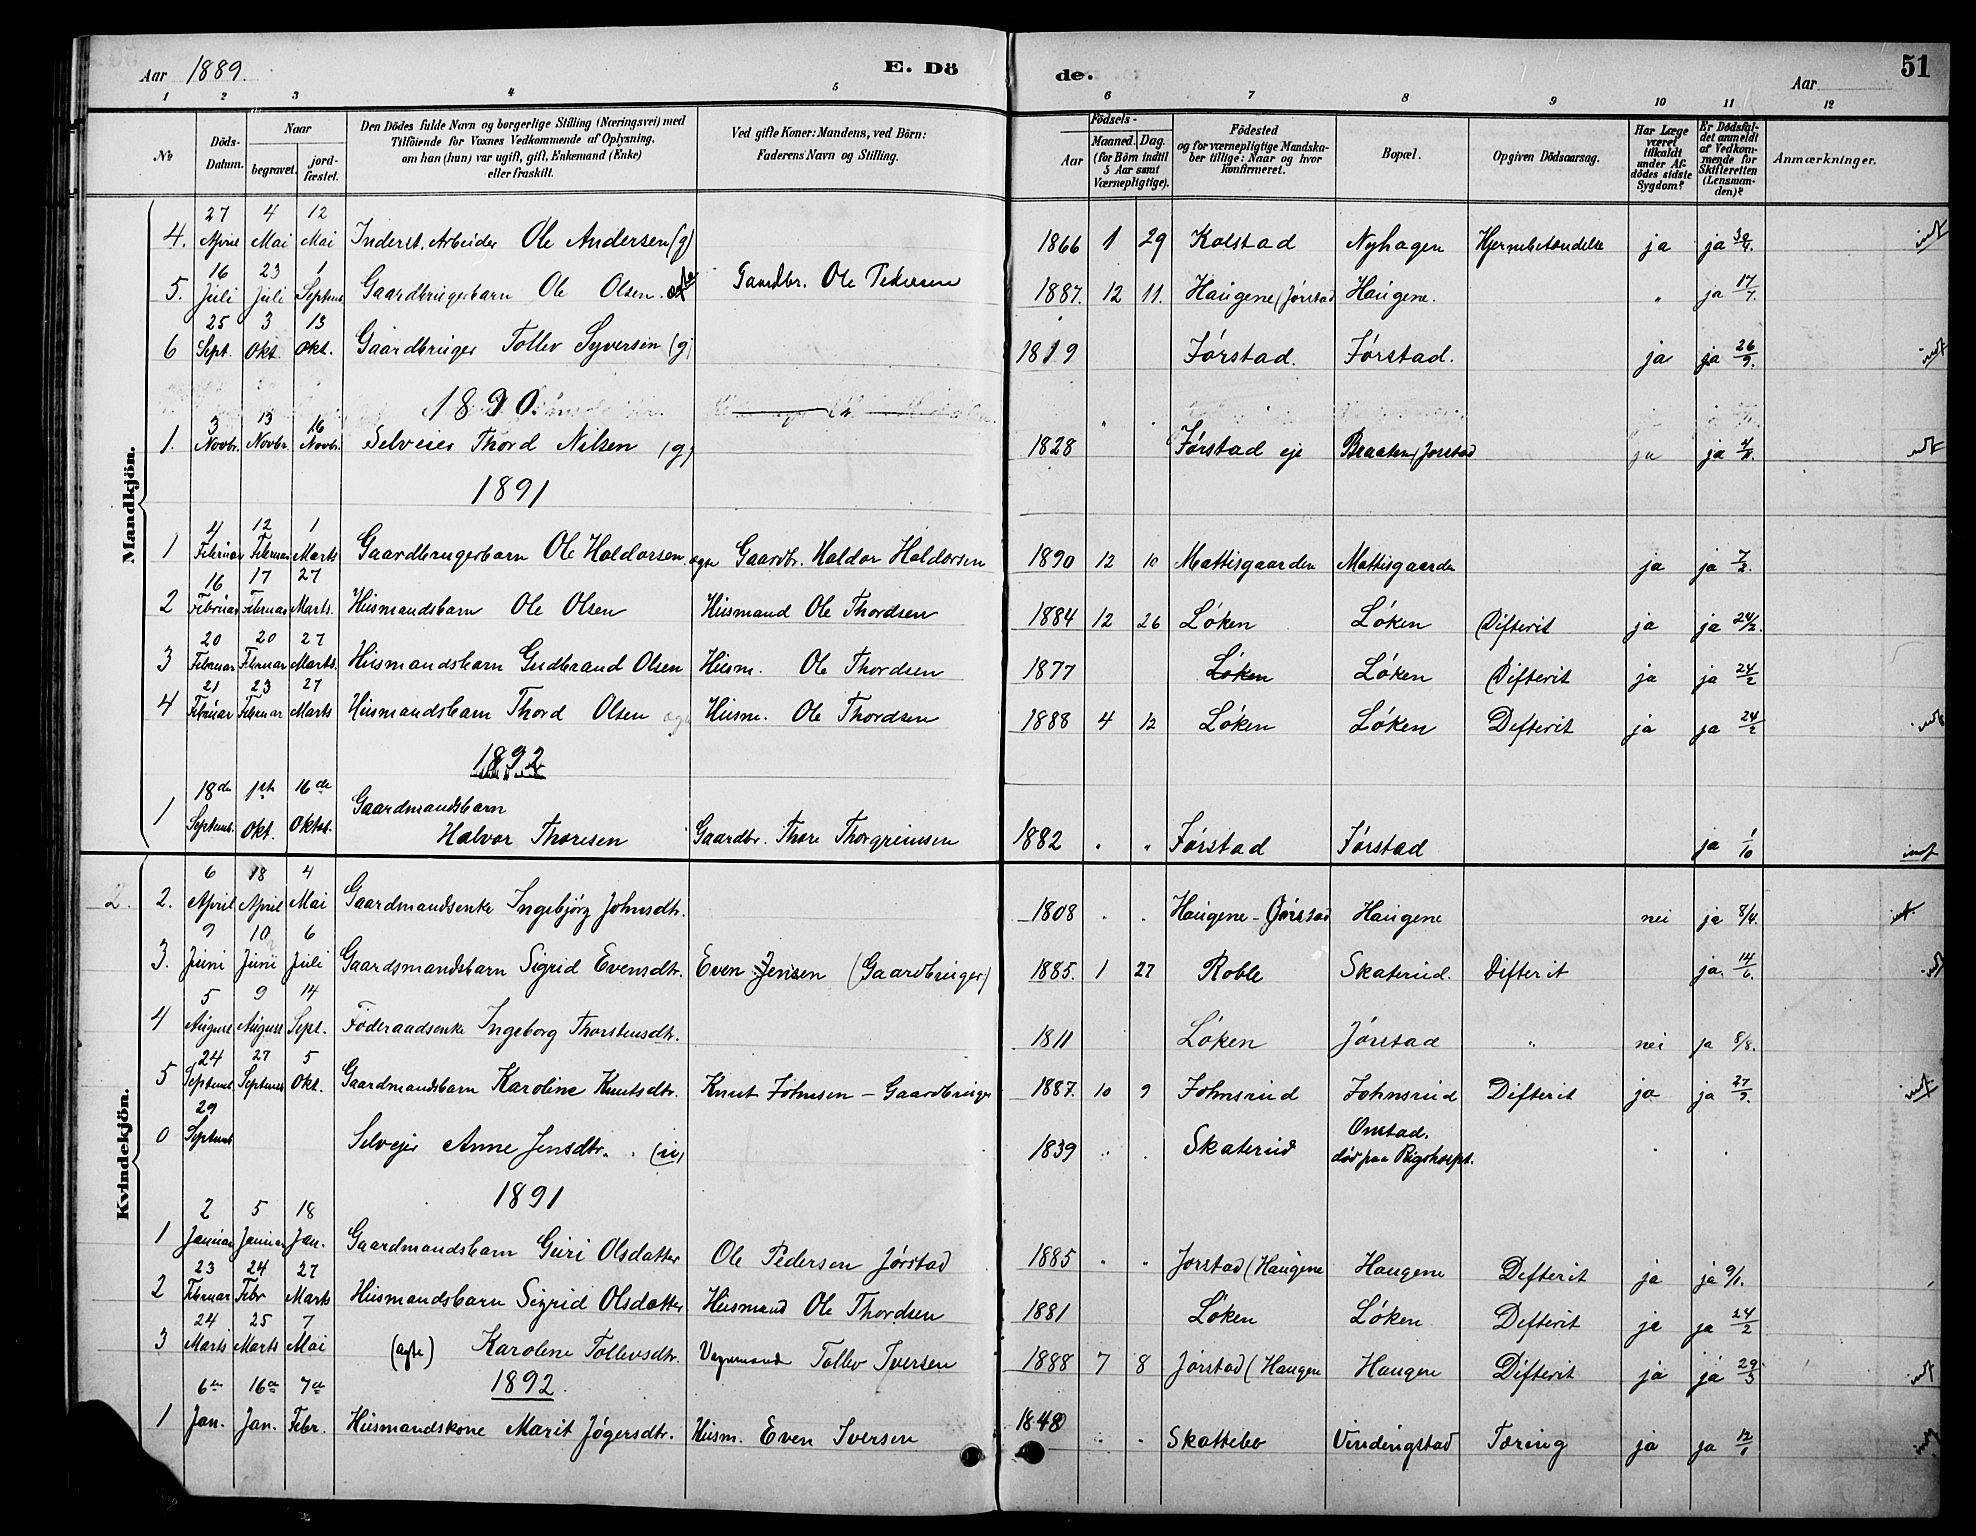 Aar 1889. E. Dö
de. Aar 51
1 2 3 4 5 6 7 8 9 10 11 12
№ Döds-Datum. Naar begravet. jordfæstet. Den Dödes fulde Navn og borgerlige Stilling (Næringsvei) med Tilföiende for Voxnes Vedkommende af Oplysning. om han (hun) var ugift, gift, Enkemand (Enke) eller fraskilt. Ved gifte Koner: Mandens, ved Börn: Faderens Navn og Stilling. Födsels- Aar Maaned. Dag. (for Börn indtil 5 Aar samt Værnepligtige). Födested og for værnepligtige Mandskaber tillige: Naar og hvor konfirmeret. Bopæl. Opgiven Dödsaarsag. Har Læge været tilkaldt under Afdödes sidste Sygdom? Er Dödsfaldet anmeldt af Vedkommende for Skifteretten (Lensmanden)? Anmærkninger.
Mandkjön.
4. 27 April 4 Mai 12 Mai Inderst. Arbeider Ole Andersen (g) 1866 1 29 Kolstad Nyhagen Hjernebetændelse ja ja 30/4. indf
5. 16 Juli 23 Juli 1 Septemb. Gaardbrugerbarn Ole Olsen. ægte Gaardbr. Ole Pedersen 1887. 12 11. Haugene (Jørstad Haugene. " ja 17/7.
6 25 Sept. 3 Okt. 13 Okt. Gaardbruger Tollev Syversen (g) 1819 Jørstad. Jørstad. ja ja 26/9. indf
1890.
1. 3 Novbr. 13 Novbr. 16 Novbr. Selveier Thord Nilsen (g) 1828 Jørstad eje Braaten (Jorstad ja ja indf
1891
1 4 Februar 12 Februar 1 Marts Gaardbrugerbarn Ole Haldorsen. ægte Gaardbr. Haldor Haldorsen 1890 12 10 Mattisgaarden Mattisgaarden ja ja 7/2.
2 16 Februar 17 Februar 27 Marts. Husmandsbarn Ole Olsen Husmand Ole Thordsen 1884 12 26 Løken Løken Difterit ja ja 24/2.
3 20 Februar 20 Februar 27 Marts. Husmandsbarn Gudbrand Olsen Husm. Ole Thordsen 1877 Løken Løken Difterit ja ja 24/2
4 21 Februar 23 Februar 27 Marts Husmandsbarn Thord Olsen ægte Husm. Ole Thordsen 1888 4 12 Løken Løken Difterit ja ja 24/2 indf
1892
1 18de Septemb. 1ste Okt. 16de Oktob. Gaardmandsbarn
Halvor Thoresen Gaardbr. Thore Thorgrimsen 1882 " " Jørstad Jørstad ja 1/10 indf
Kvindekjön.
2. 2. 6 April 18 April 4 Mai Gaardmandsenke Ingebjørg Johnsdtr. 1808 " " Haugene - Jørstad Haugene nei ja 8/4. indf.
3. 9 Juni 10 Juni 6 Juli Gaardsmandsbarn Sigrid Evensdtr. Even Jensen (Gaardbruger) 1885. 1 27 Roble Skaterud. Difterit ja 14/6. indf
4 5 August 9 August 14 Sept. Føderaadsenke Ingeborg Thorstensdtr. 1811 Løken Jørstad " nei ja 8/8.
5 24 Septemb 27 Septemb 5 Okt. Gaardmandsbarn Karoline Knutsdtr. Knut Johnsen - Gaardbruger 1887. 10 9 Johnsrud Johnsrud Difterit ja ja 27/9. indf
0 29 Septemb Selvejer Anne Jensdtr. (u) 1839 " " Skaterud Onstad.
død paa Rigshospt.
1891
1 2 Januar 5 Januar 18 Jan. Gaardmandsbarn Guri Olsdatter Ole Pedersen Jørstad 1885 " " Jorstad (Haugene Haugene Difterit ja ja 9/1.
2 23 Februar 24 Febr 27 Marts Husmandsbarn Sigrid Olsdatter Husmand Ole Thordsen 1881 Løken Løken Difterit ja ja 24/2
3 24 Marts 25 Marts 7 Mai (ægte) Karoline Tollevsdtr. Tollev Iversen 1888 7 8 Jørstad (Haugen Haugen Difterit ja ja 29/3 indf
1892.
1 6te Jan. 16de Jan. 7de Febr. Husmandskone Marit Jøgersdtr. Husm. Even Iversen 1848 " " Skattebo Vindingstad Tæring ja ja 12/1 indf